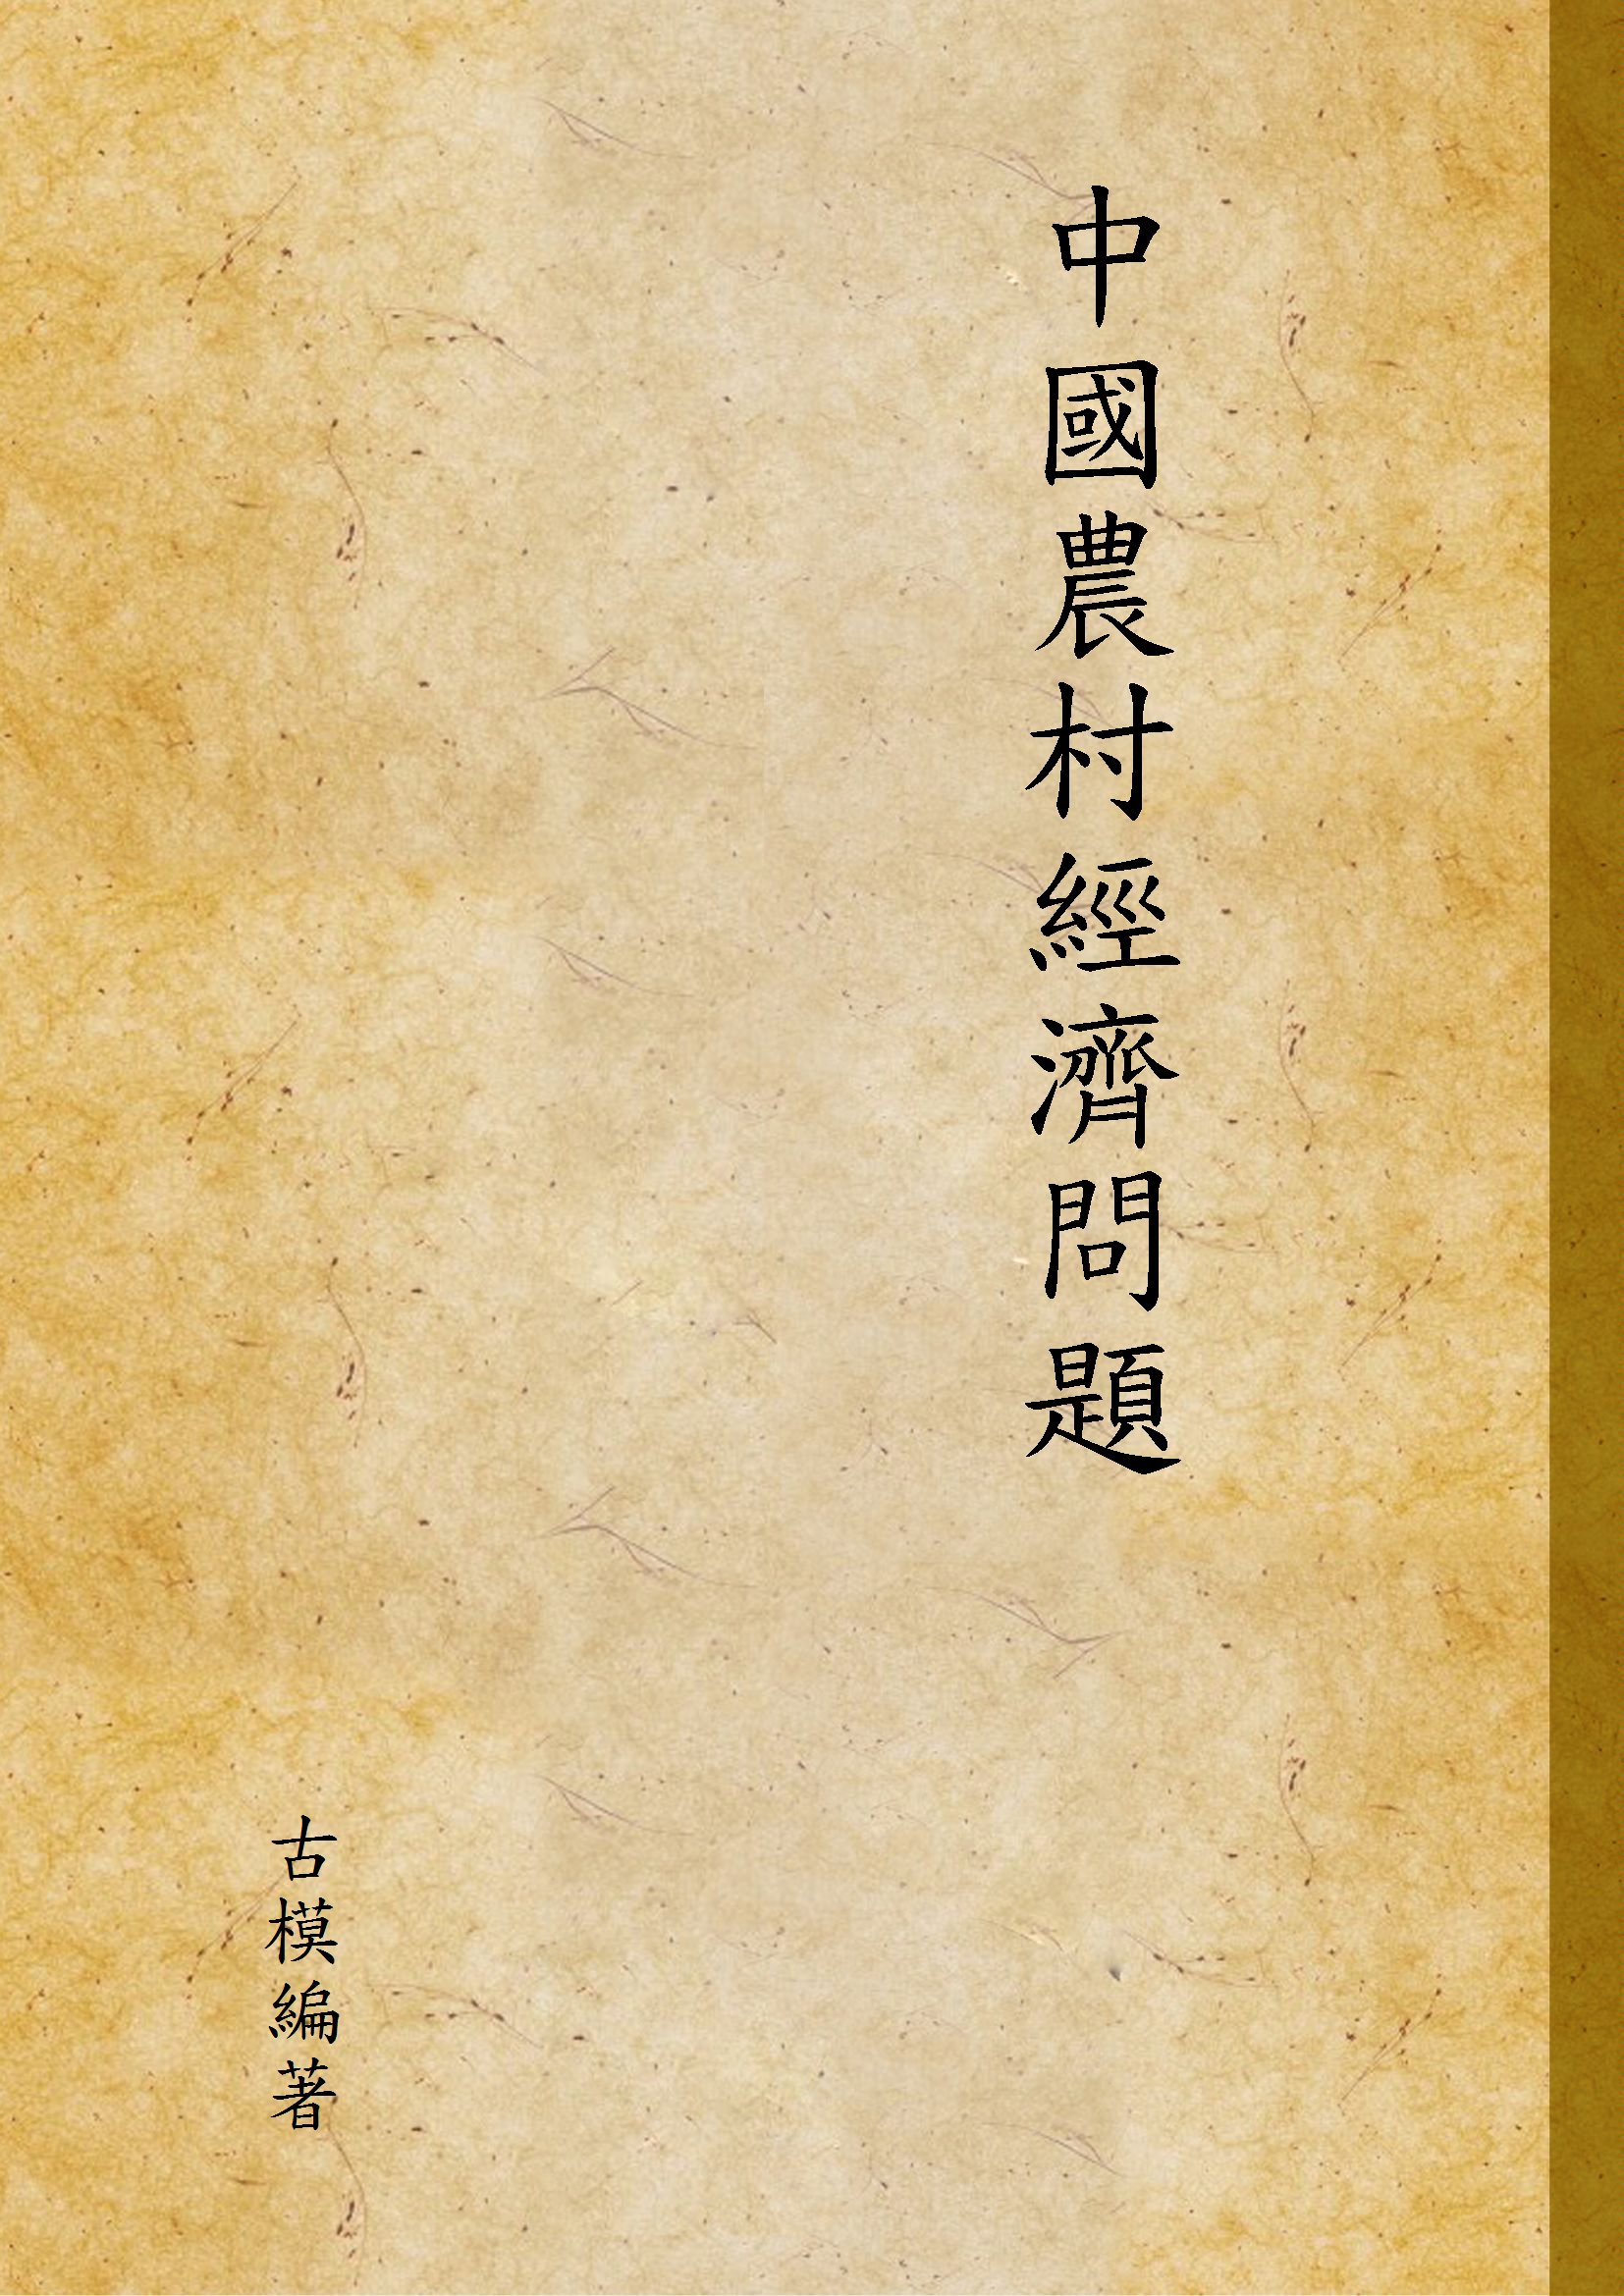 中國農村經濟問題
古模編著